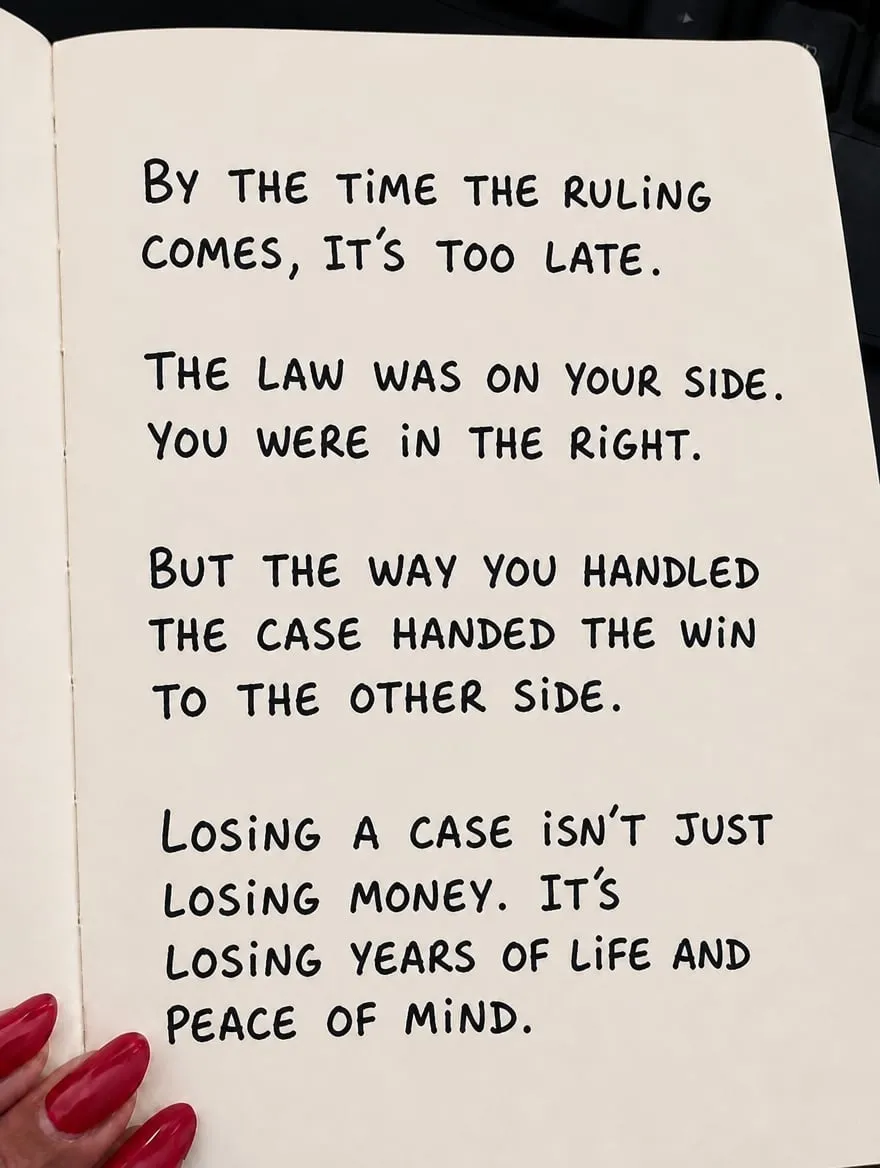 By the time the ruling
comes, it's too late.
The law was on your side.
You were in the right.
But the way you handled
the case handed the win
to the other side.
Losing a case isn't just
losing money. It's
losing years of life and
peace of mind.